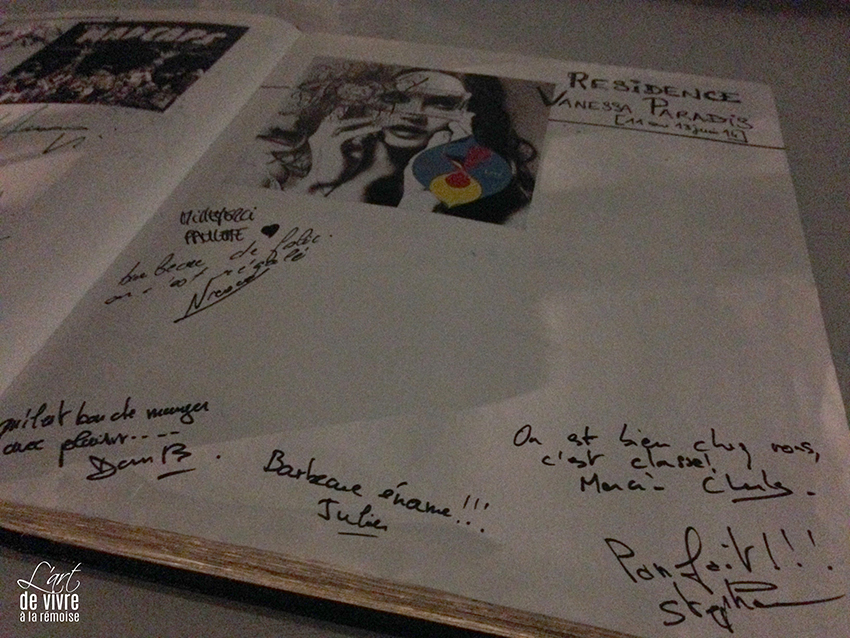 MADCAPS
RESIDENCE
VANESSA PARADIS
[11 au 13 juin 14]
Mille merci
PAULETTE
barbecue de folie.
on s'est régalé
qu'il est bon de manger
avec plaisir....
Dan B.
Barbecue énorme!!!
Julien
On est bien chez vous,
c'est classe!
Merci- Charles.
Parfait!!!.
Stephane
L'art
de vivre
à la rémoise